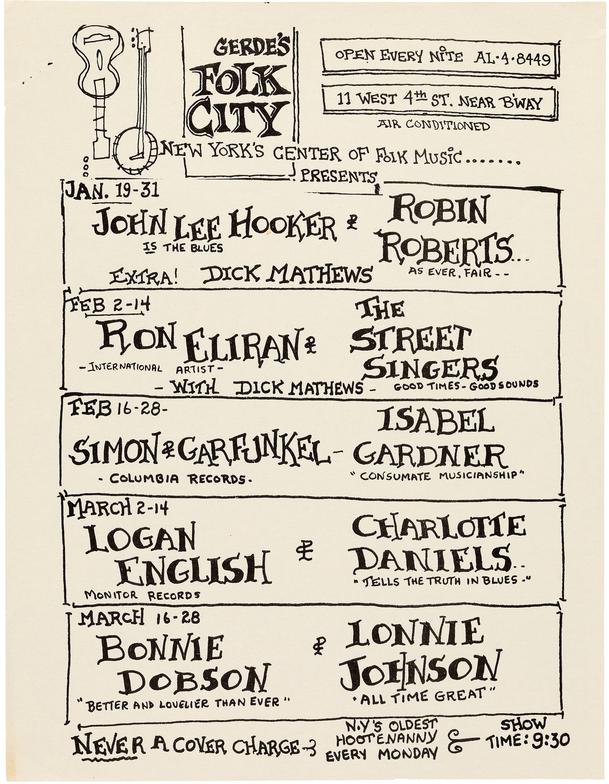 GERDE'S
FOLK
CITY
OPEN EVERY NITE AL·4·8449
11 WEST 4th ST. NEAR B'WAY
AIR CONDITIONED
NEW YORK'S CENTER OF FOLK MUSIC.......
PRESENTS
JAN. 19-31
JOHN LEE HOOKER &
IS THE BLUES
ROBIN
ROBERTS...
AS EVER, FAIR--
EXTRA! DICK MATHEWS
FEB 2-14
RON ELIRAN &
-INTERNATIONAL ARTIST-
THE
STREET
SINGERS
GOOD TIMES-GOOD SOUNDS
- WITH DICK MATHEWS -
FEB 16-28-
SIMON & GARFUNKEL-
- COLUMBIA RECORDS.
ISABEL
GARDNER
"CONSUMATE MUSICIANSHIP"
MARCH 2-14
LOGAN
ENGLISH
MONITOR RECORDS
&
CHARLOTTE
DANIELS..
"TELLS THE TRUTH IN BLUES-"
MARCH 16-28
BONNIE
DOBSON
"BETTER AND LOVELIER THAN EVER"
&
LONNIE
JOHNSON
"ALL TIME GREAT"
NEVER A COVER CHARGE-
N.Y'S OLDEST
HOOTENANNY
EVERY MONDAY
&
SHOW
TIME: 9:30